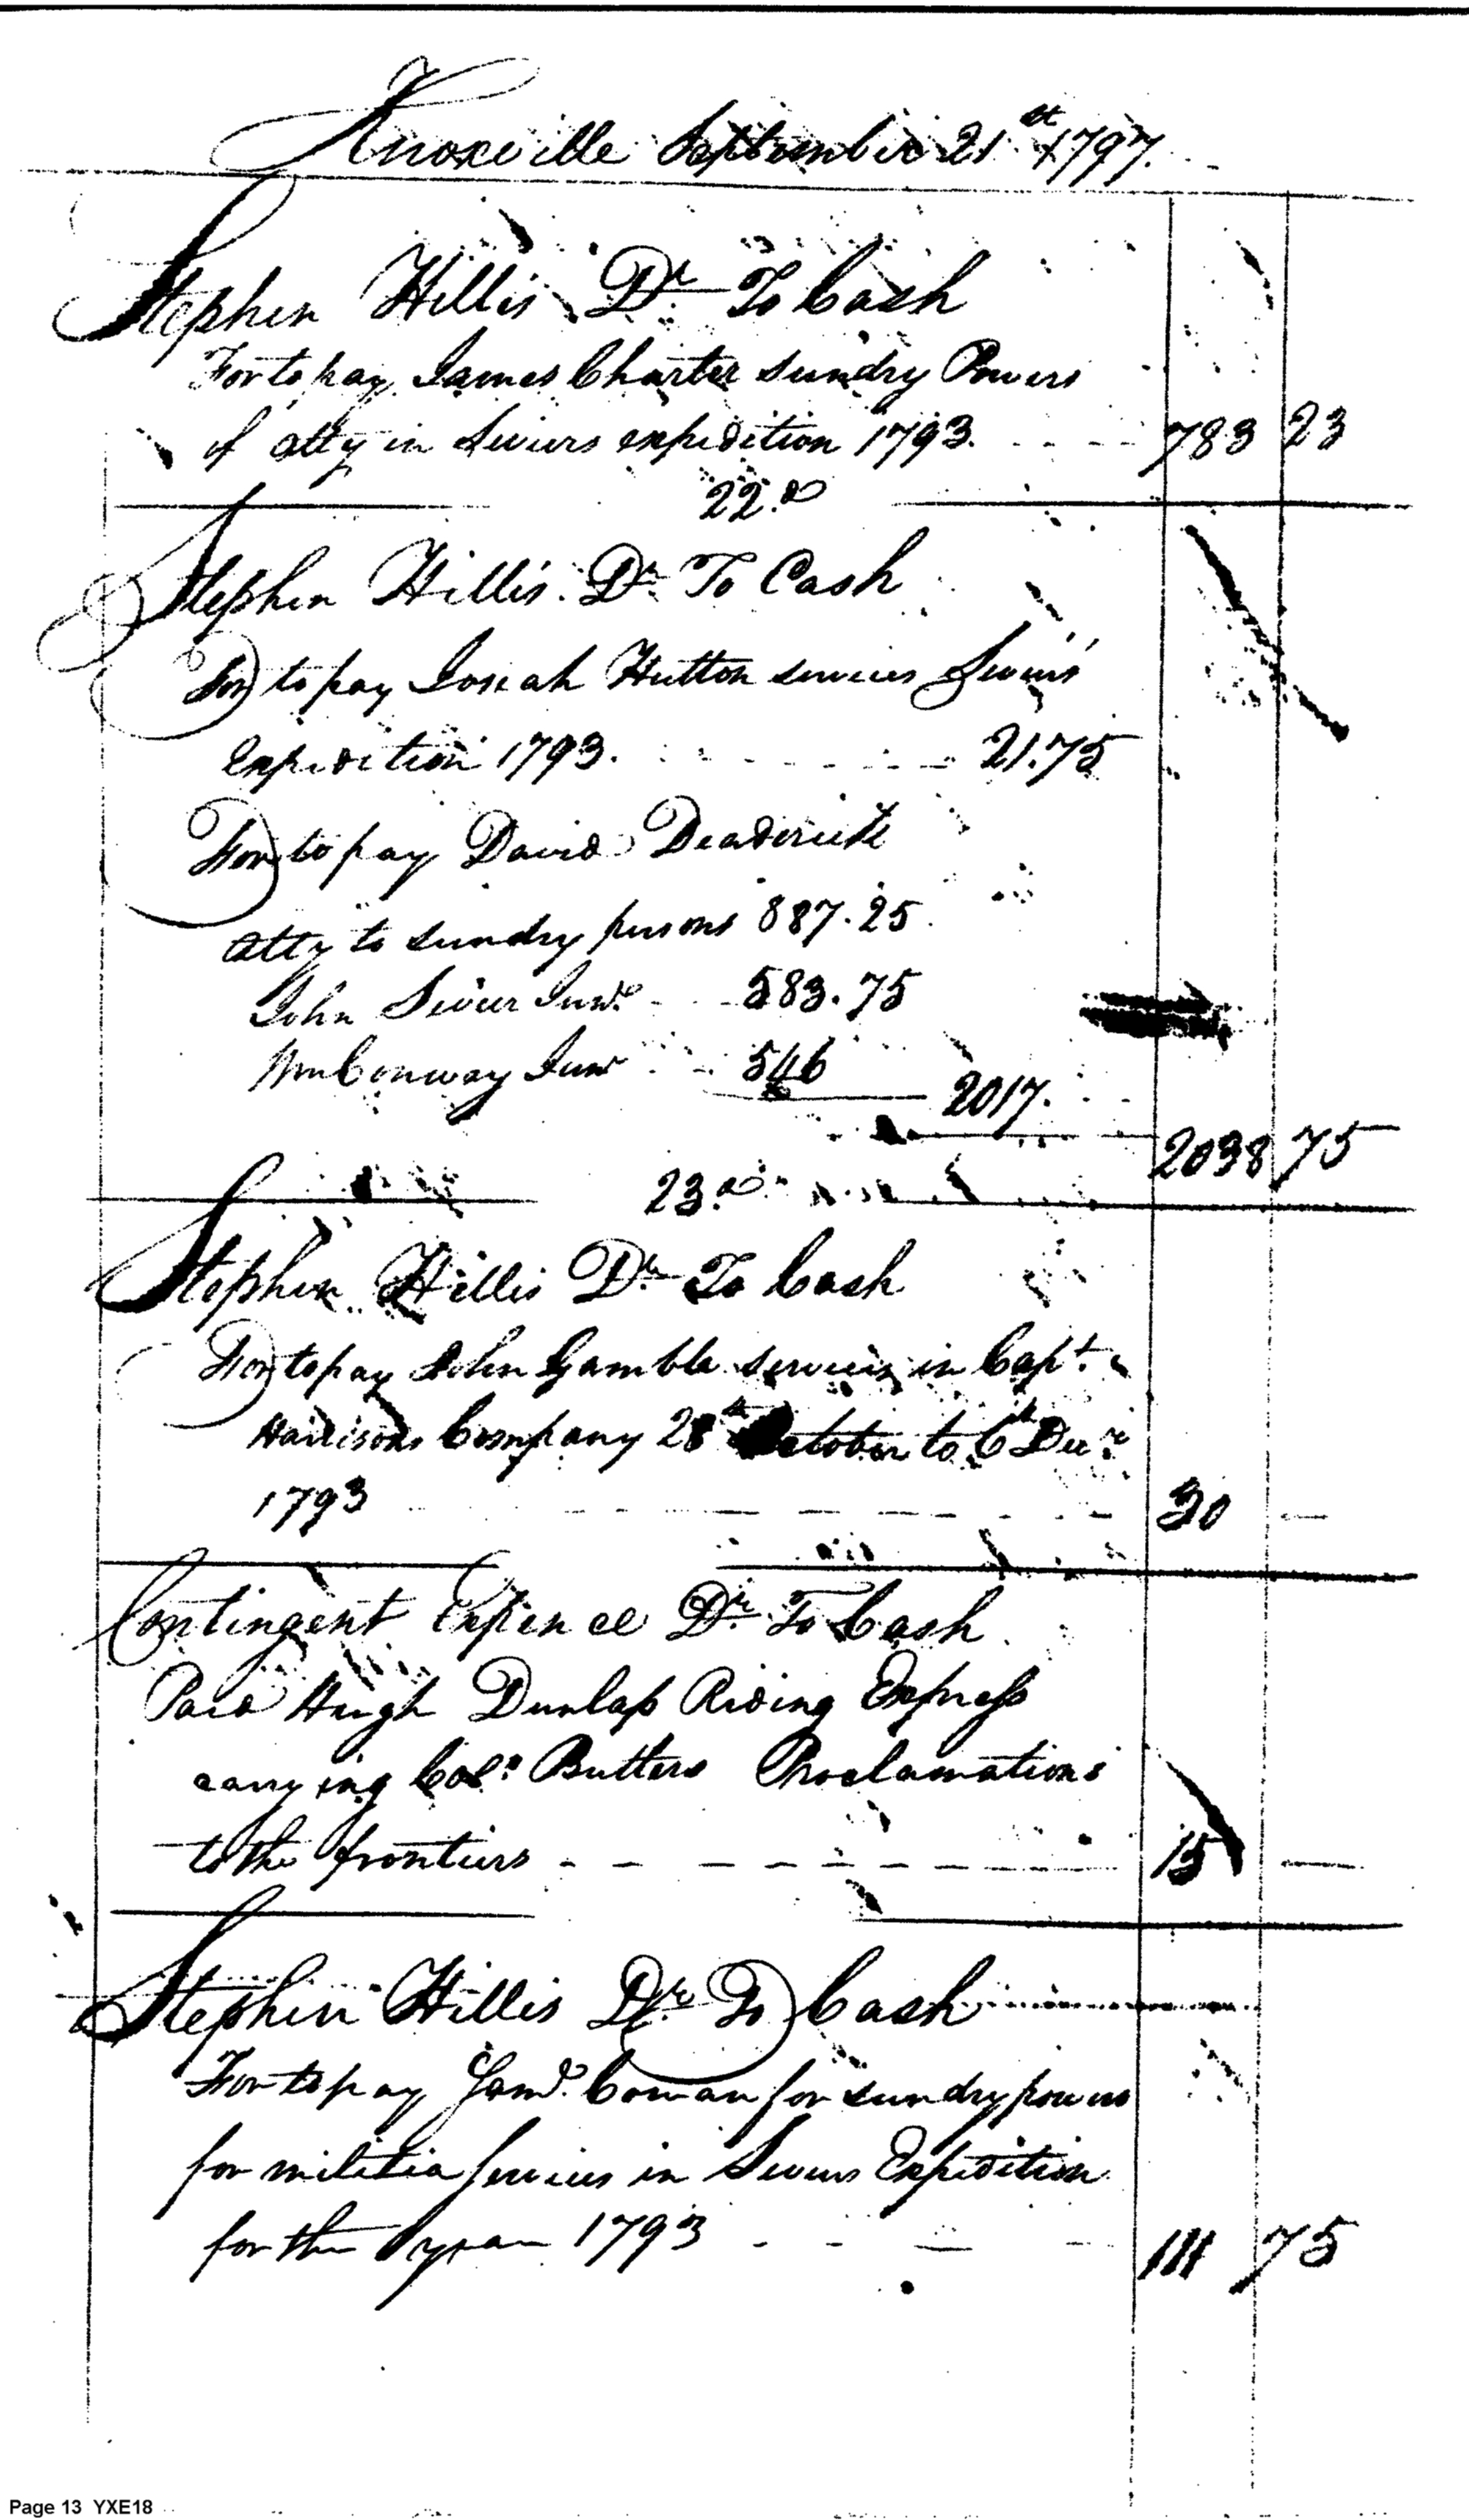 Knoxville September 21st 1797.
Stephen Hillis Dr To Cash
For to pay James Charter sundry Powers
of atty in Seviers expedition 1793. 783 23
22.d
Stephen Hillis Dr To Cash
For to pay Josiah Hutton services Seviers
Expedition 1793. 21.75
For to pay David Deaderick
atty to sundry persons 887.25
John Sevier Junr 583.75
Wm Conway Junr 546
2017.
2038 75
23.d
Stephen Hillis Dr To Cash
For to pay John Gamble services in Capt.
Harrisons Company 28th October to 6th Decr
1793 30 —
Contingent Expence Dr To Cash
Paid Hugh Dunlap Riding Express
carrying Col. Butlers Proclamations
to the frontiers 15 —
Stephen Hillis Dr To Cash
For to pay Saml. Cowan for sundry powers
for militia services in Seviers Expedition
for the year 1793 111 75
Page 13 YXE18